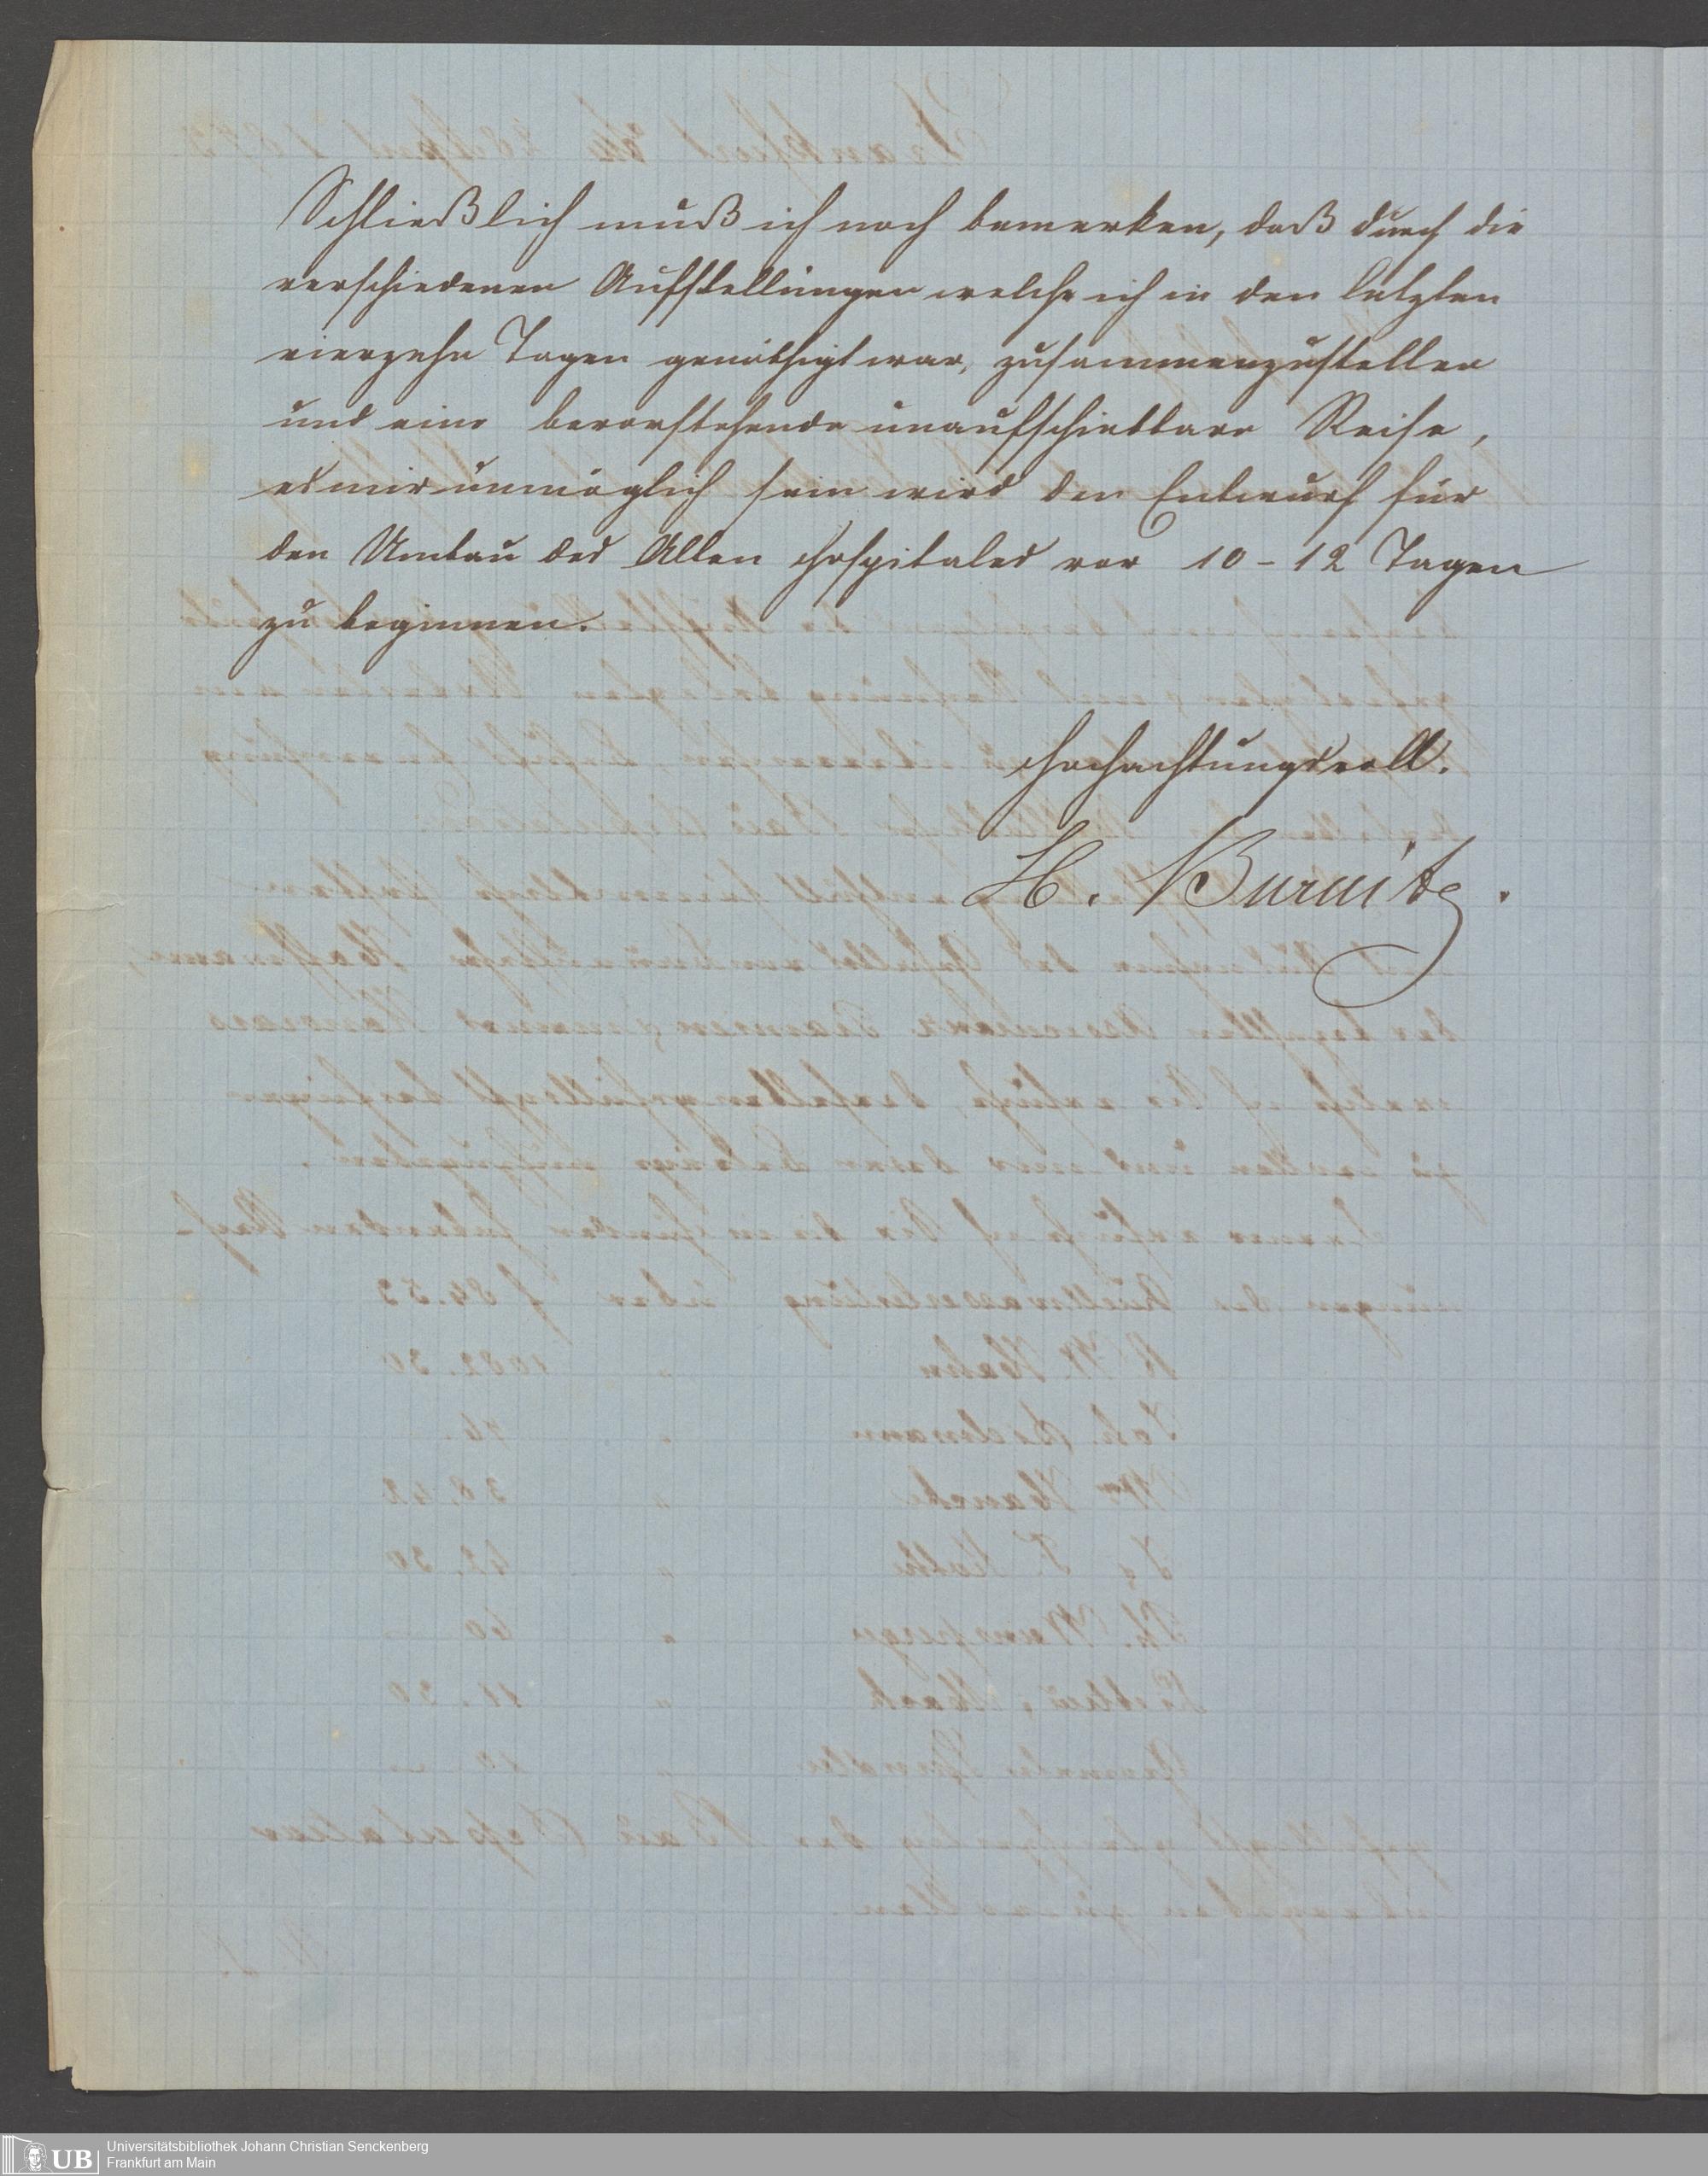 Schließlich muß ich noch bemerken, daß durch die
verschiedenen Aufstellungen welche ich in den letzten
vierzehn Tagen genöthigt war, zusammenzustellen
und eine bevorstehende unaufschiebbare Reise,
es mir unmöglich sein wird den Entwurf für
den Umbau des Alten Hospitales vor 10-12 Tagen
zu beginnen.
Hochachtungsvoll.
H. Burnitz.
UB
Universitätsbibliothek Johann Christian Senckenberg
Frankfurt am Main